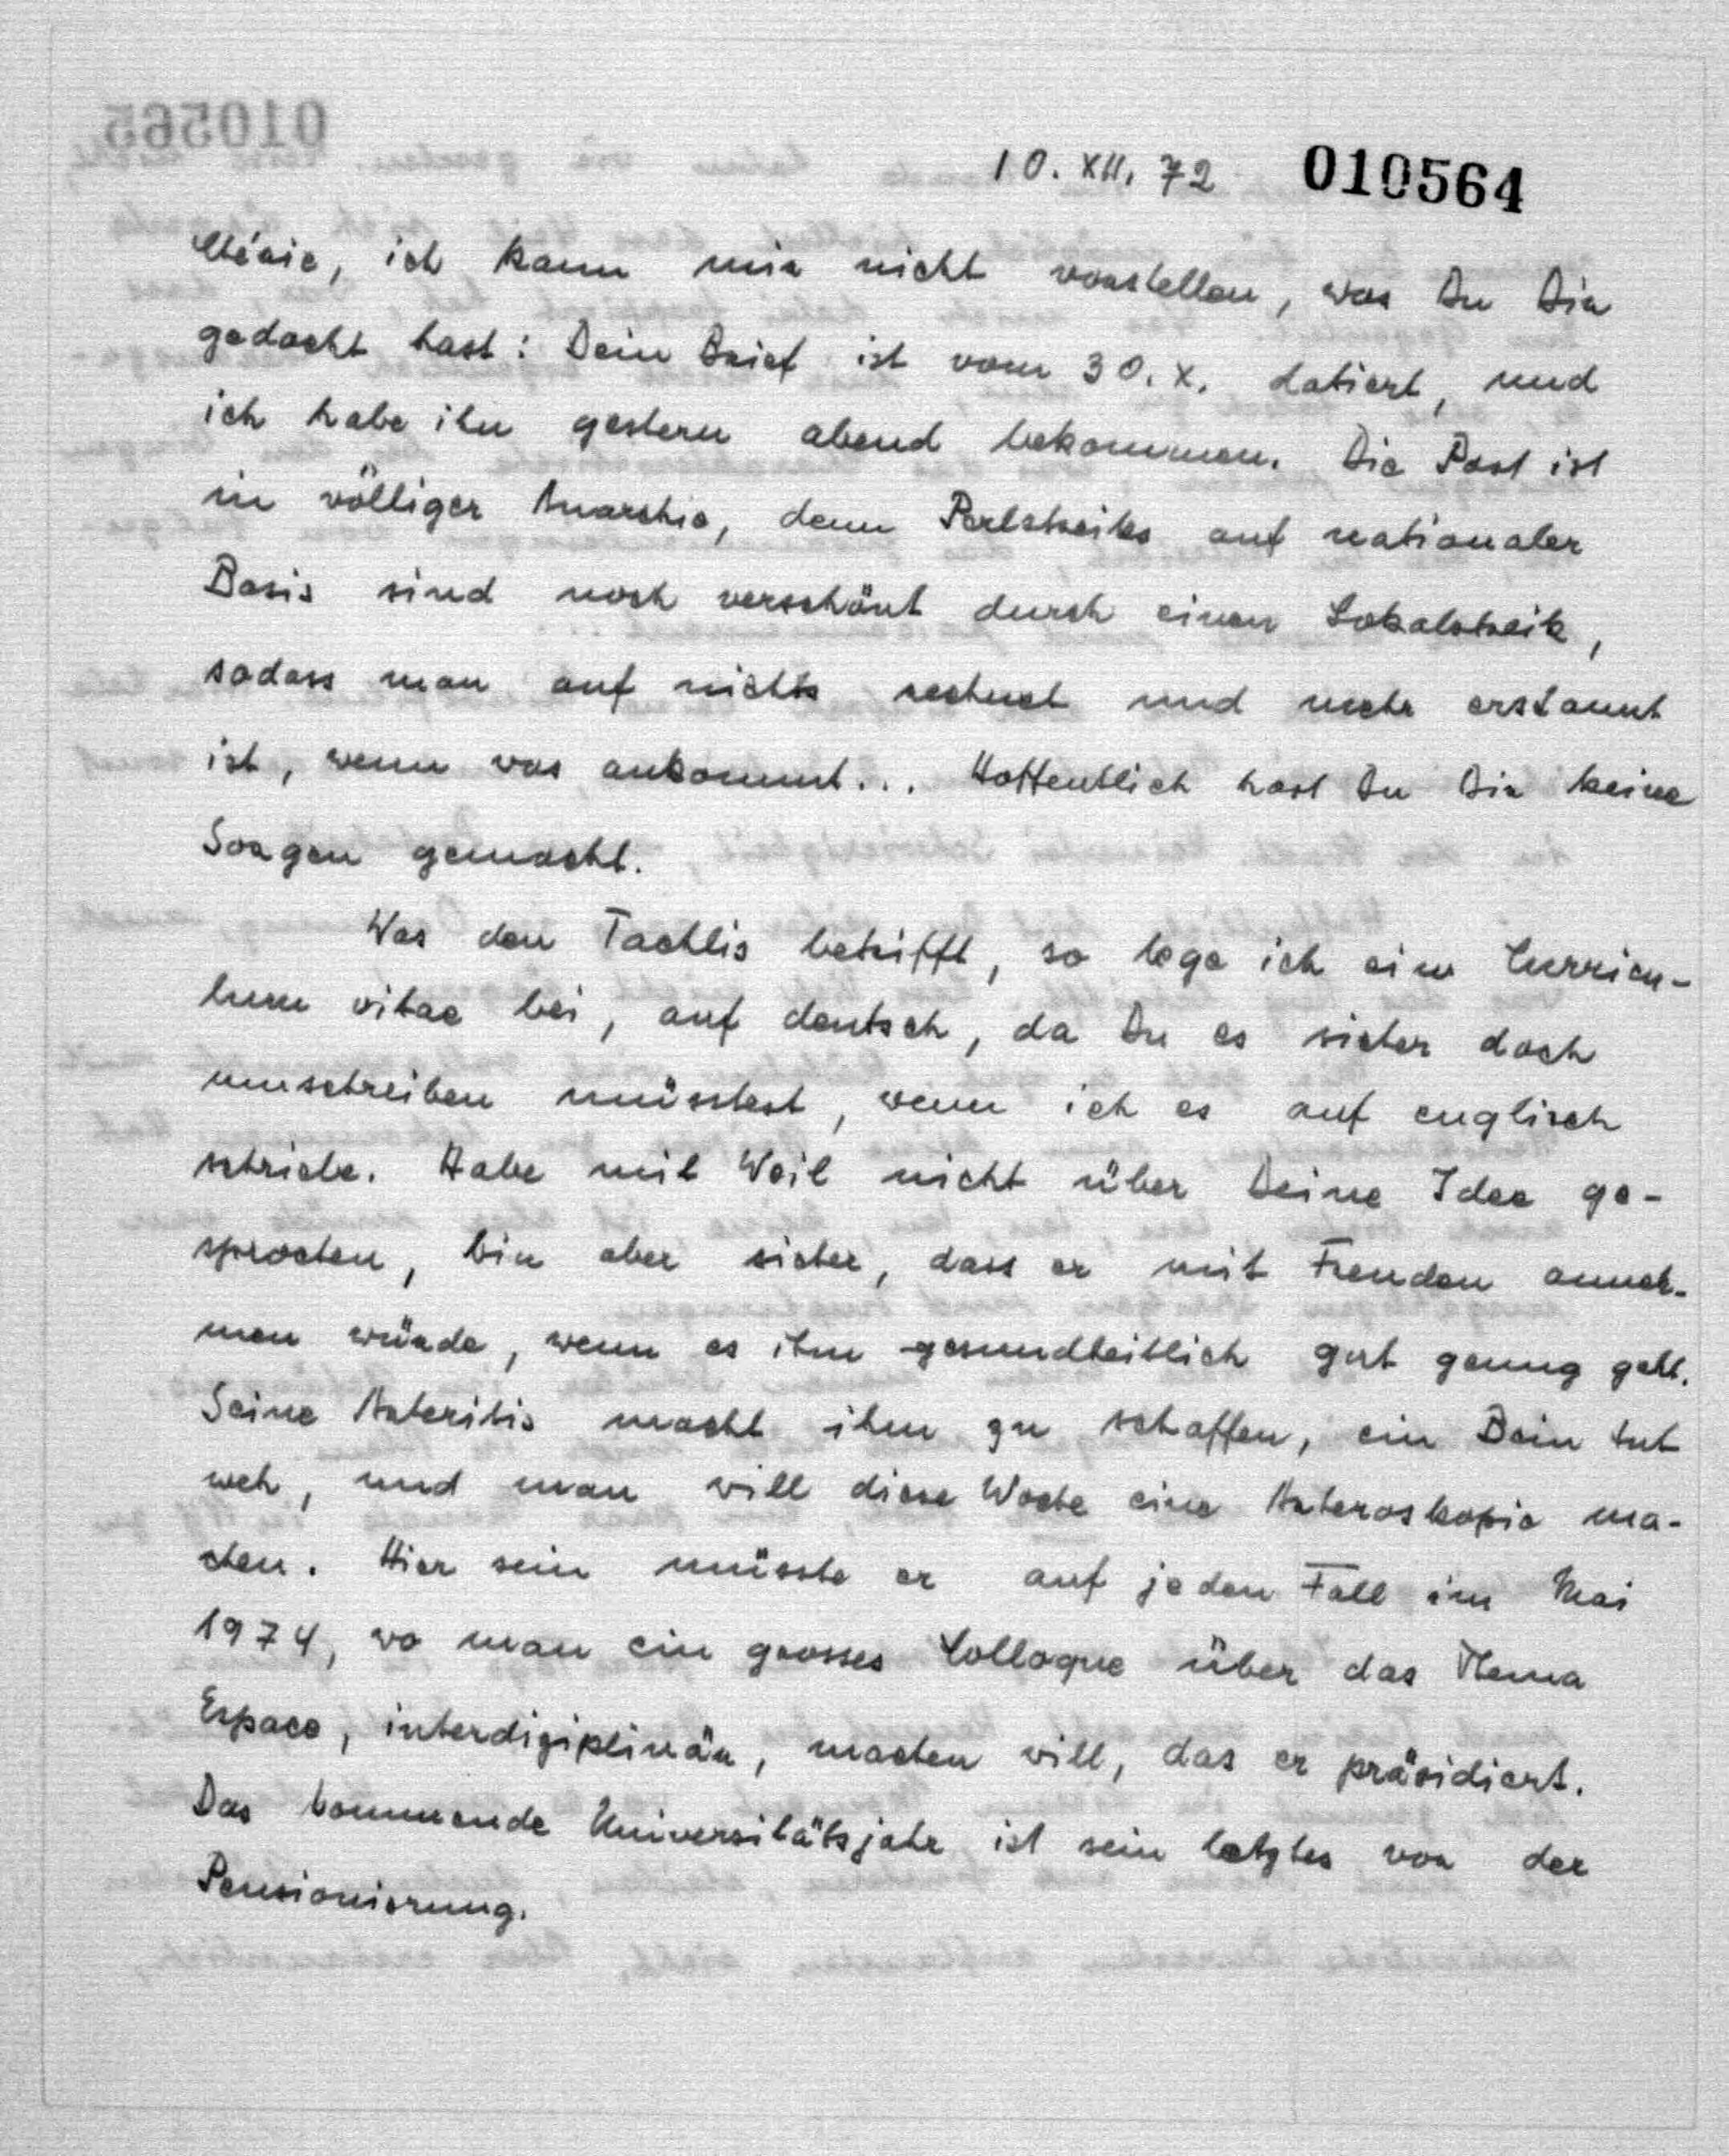 010565
10. XII. 72 010564
Chérie, ich kann mir nicht vorstellen, was Du Dir
gedacht hast: Dein Brief ist vom 30. X. datiert, und
ich habe ihn gestern abend bekommen. Die Post ist
in völliger Anarchie, denn Perlstreiks auf nationaler
Basis sind noch verschönt durch einen Lokalstreik,
sodass man auf nichts rechnet und mehr erstaunt
ist, wenn was ankommt... Hoffentlich hast Du Dir keine
Sorgen gemacht.
Was den Tachlis betrifft, so lege ich ein Curricu-
lum vitae bei, auf deutsch, da Du es sicher doch
umschreiben müsstest, wenn ich es auf englisch
schriebe. Habe mit Weil nicht über Deine Idee ge-
sprochen, bin aber sicher, dass er mit Freuden anneh-
men würde, wenn es ihm gesundheitlich gut genug geht.
Seine Arteritis macht ihm zu schaffen, ein Bein tut
weh, und man will diese Woche eine Arteroskopie ma-
chen. Hier sein müsste er auf jeden Fall im Mai
1974, wo man ein grosses Colloque über das Thema
Espace, interdiziplinär, machen will, das er präsidiert.
Das kommende Universitätsjahr ist sein letztes vor der
Pensionierung.